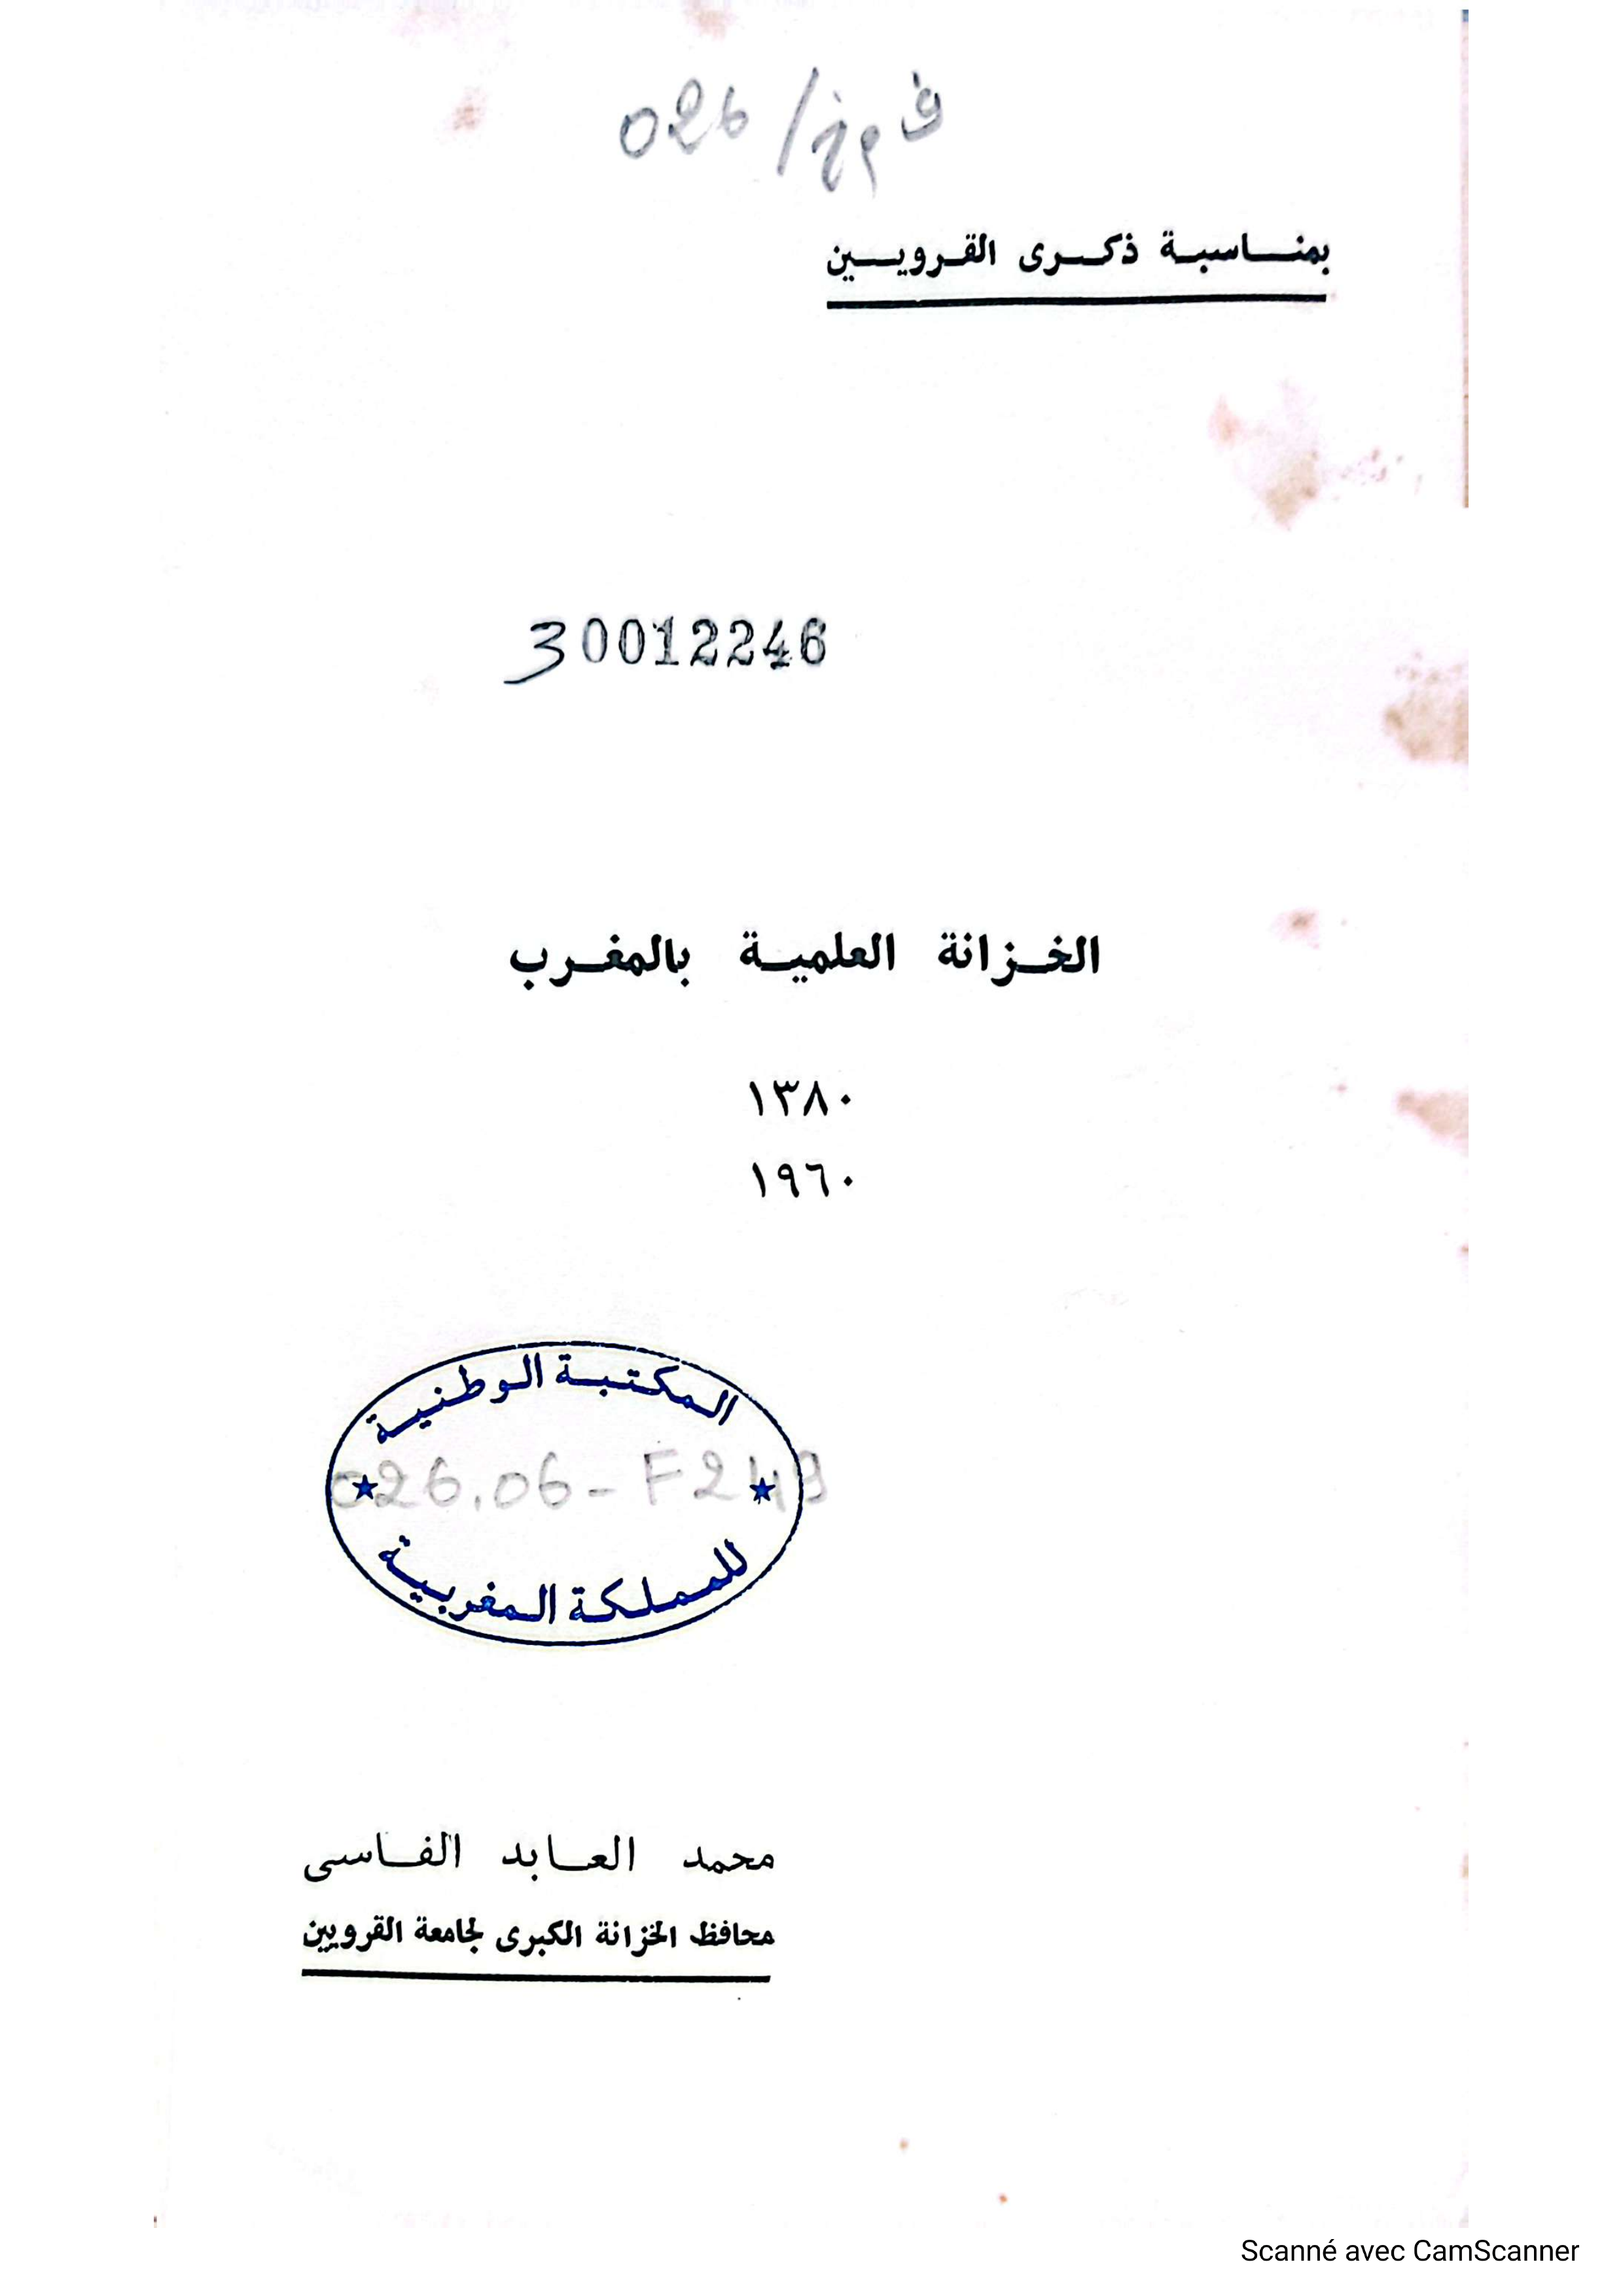 026 /
بمناسبة ذكرى القرويين
30012246
الخزانة العلمية بالمغرب
١٣٨٠
١٩٦٠
المكتبة الوطنية
026.06 - F 249
للمملكة المغربية
محمد العابد الفاسى
محافظ الخزانة الكبرى لجامعة القرويين
Scanné avec CamScanner